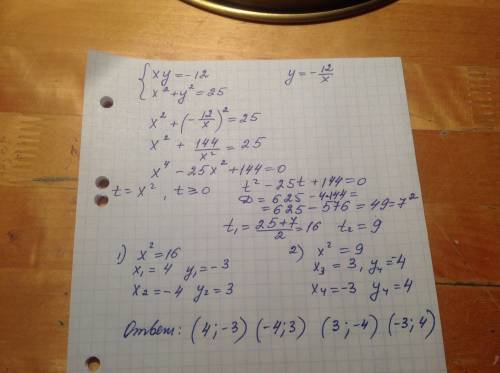 { xy = -12      y = -12/x
{ x² + y² = 25
x² + (-12/x)² = 25
x² + 144/x² = 25
x⁴ - 25x² + 144 = 0
t = x², t ≥ 0      t² - 25t + 144 = 0
D = 625 - 4·144 =
= 625 - 576 = 49 = 7²
t₁ = (25+7)/2 = 16   t₂ = 9
1) x² = 16      2) x² = 9
x₁ = 4  y₁ = -3      x₃ = 3, y₄ = -4
x₂ = -4  y₂ = 3      x₄ = -3  y₄ = 4
Ответ: (4; -3) (-4; 3) (3; -4) (-3; 4)